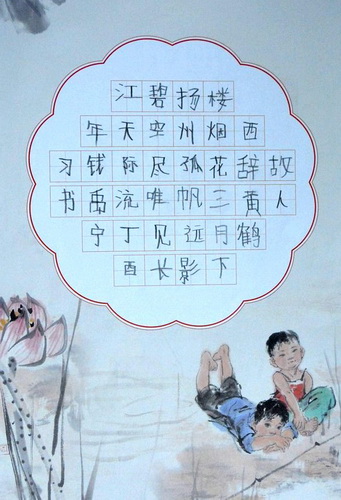 故人
西辞黄鹤
楼烟花三月下
扬州孤帆远影
碧空尽唯见长
江天际流丁酉
年钱禹宁
习书